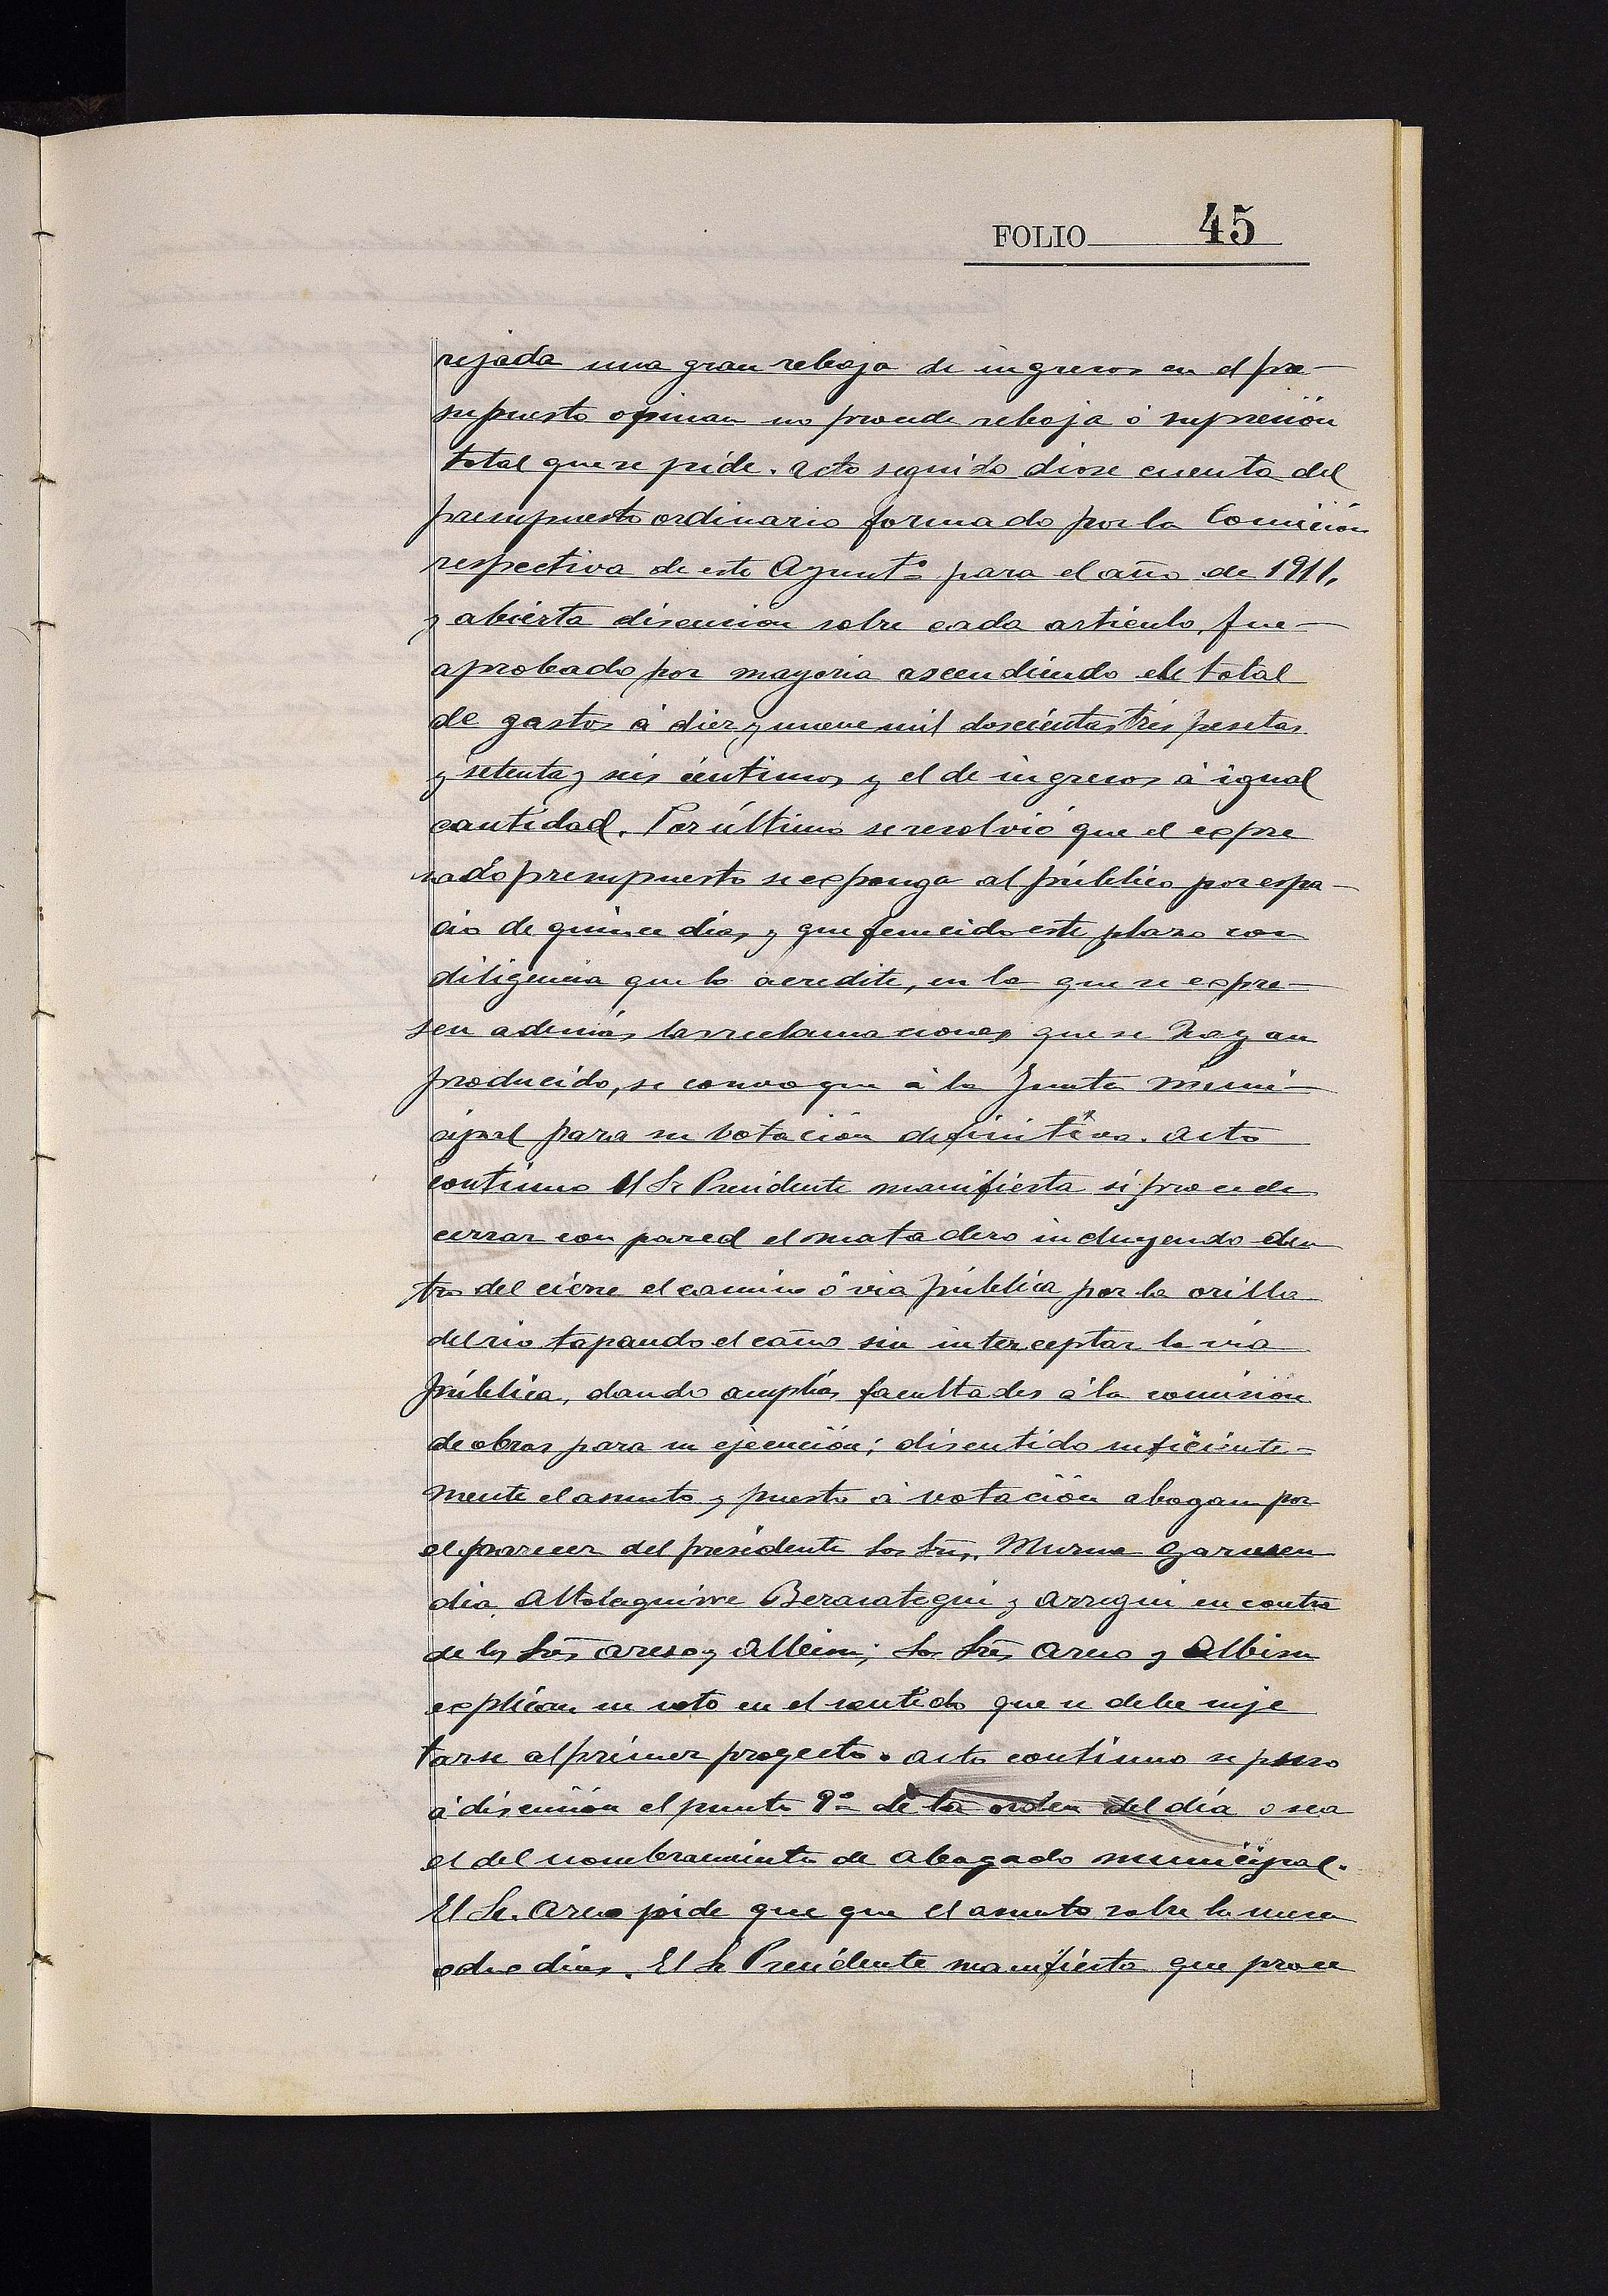 FOLIO 45
rejada una gran rebaja de ingresos en el pre-
supuesto opinan no procede rebaja ó supresión
total que se pide. acto seguido diose cuenta del
presupuesto ordinario formado por la Comision
respectiva de este Ayuntº para el año de 1911,
y abierta discusion sobre cada articulo, fue-
aprobado por mayoria ascendiendo el total
de gastos á diez y nueve mil doscientas tres pesetas
y setenta y seis centimos y el de ingresos á igual
cantidad. Por último se resolvió que el expre
sado presupuesto se exponga al público por espa-
cio de quince dias, y que fenecido este plazo con
diligencia que lo acredite, en la que se expre-
sen además las reclamaciones que se hayan
producido, se convoque á la Junta Muni-
cipal para su votación definitiva. acto
continuo El Sr Presidente manifiesta si procede
cerrar con pared el matadero incluyendo den
tro del cierre el camino ó via pública por la orilla
del rio tapando el caño sin interceptar la via
pública, dando amplias facultades á la comision
de obras para su ejecución; discutido suficiente-
mente el asunto y puesto á votación abogan por
el parecer del presidente los Srs. Murua Garmen
dia Altolaguirre Berasategui y Arregui en contra
de los Srs Areso y Albisu; los Srs Areso y Albisu
explican su voto en el sentido que se debe suje
tarse al primer proyecto. acto continuo se puso
á discusión el punto 9º de la orden del día o sea
el del nombramiento de abogado municipal.
El Sr. Areso pide que que el asunto sobre la mesa
ocho dias. El Sr Presidente manifiesta que proce